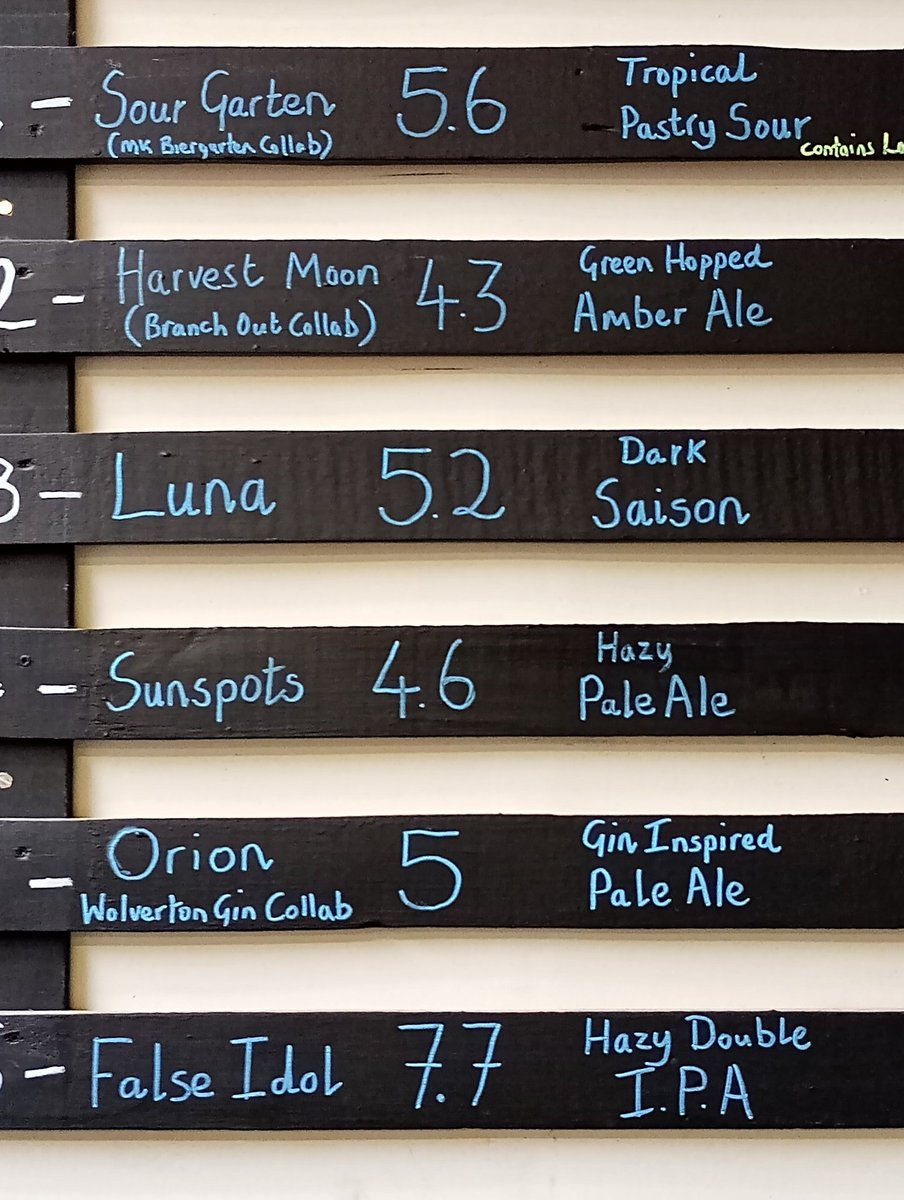 - Sour Garten 5.6 Tropical
(MK Biergarten Collab) Pastry Sour
contains
2 - Harvest Moon 4.3 Green Hopped
(Branch Out Collab) Amber Ale
3 - Luna 5.2 Dark
Saison
- Sunspots 4.6 Hazy
Pale Ale
- Orion 5 Gin Inspired
Wolverton Gin Collab Pale Ale
- False Idol 7.7 Hazy Double
I.P.A